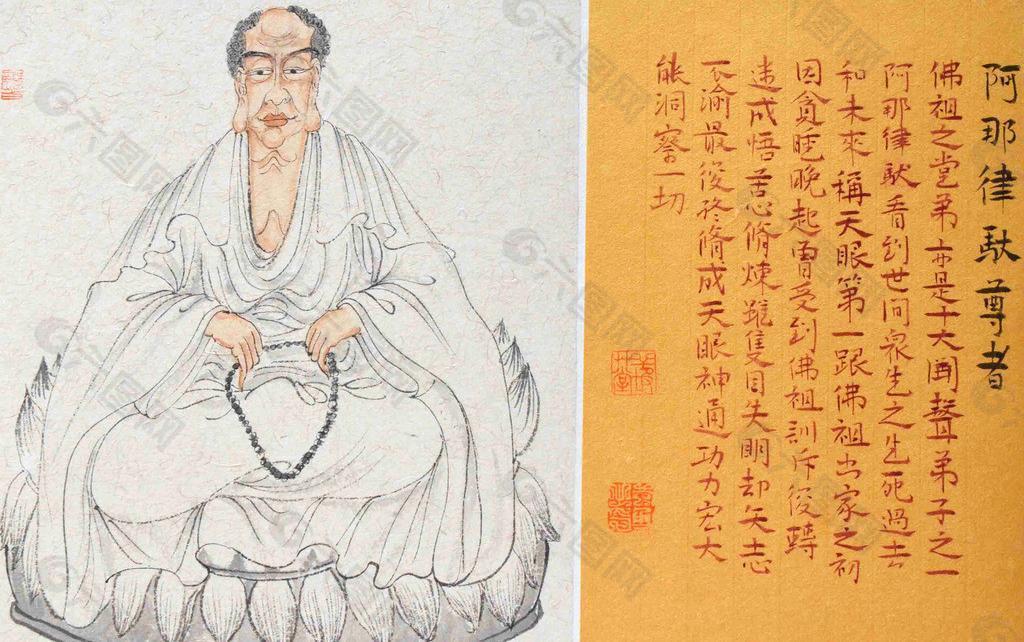 阿那律馱尊者
佛祖之堂弟亦是十大聞聲弟子之一
阿那律馱看到世间衆生之生死過去
和未來稱天眼第一跟佛祖出家之初
因貪睡晚起曾受到佛祖訓斥後轉
迷成悟苦心脩煉雖隻目失明却矢志
不渝最後终脩成天眼神通功力宏大
能洞察一切
六图网